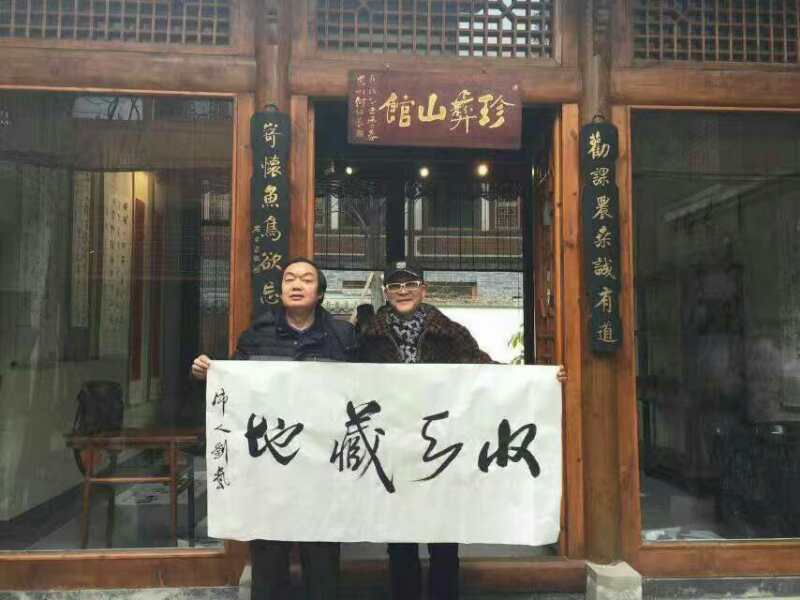 珍彝山館
勸課農桑誠有道
寄懷魚鳥欲忘
收天藏地
沛人劉藝